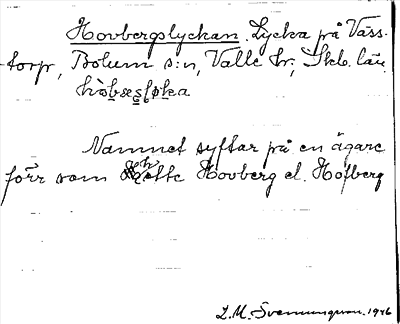 Hovbergslyckan. Lycka på Väss-
torp, Bolum s:n, Valle hr, Skb. län.
Namnet syftar på en ägare
förr som hette Hovberg el. Hofberg
L. M. Svenungsson. 1946